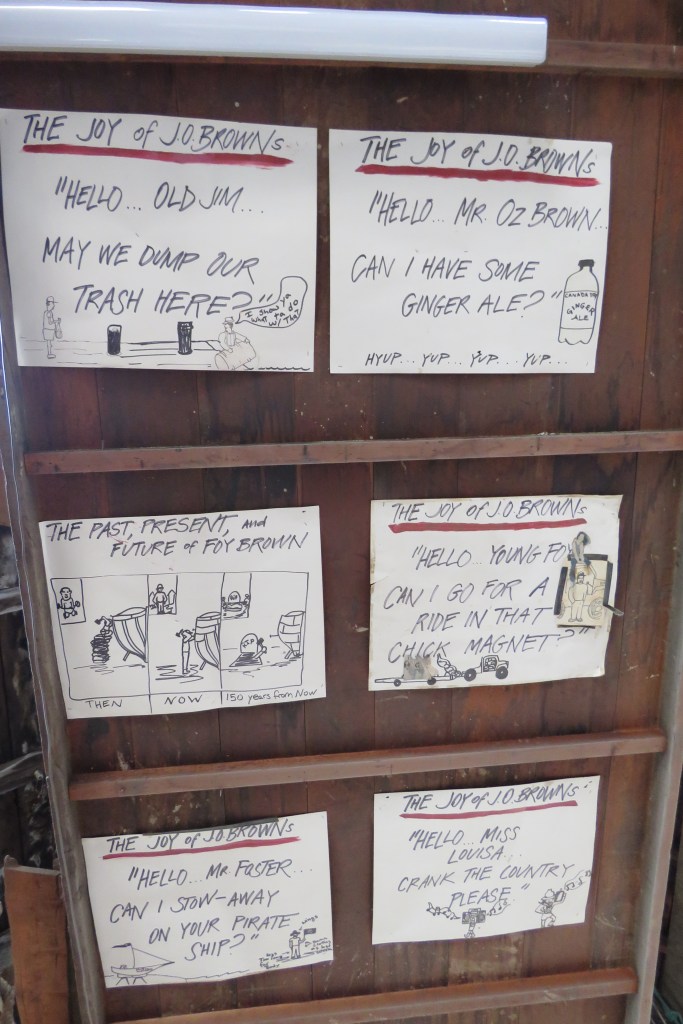 THE JOY of J.O. BROWNs
"HELLO... OLD JIM...
MAY WE DUMP OUR
TRASH HERE?"
I show ya
what ta do
w/ that!
THE JOY of J.O. BROWNs
"HELLO... MR. OZ BROWN...
CAN I HAVE SOME
GINGER ALE?"
CANADA
GINGER
ALE
HYUP... YUP... YUP... YUP...
THE PAST, PRESENT, and
FUTURE of FOY BROWN
R.I.P.
THEN
NOW
150 years from Now
THE JOY of J.O. BROWNs
"HELLO... YOUNG FO
CAN I GO FOR A
RIDE IN THAT
CHICK MAGNET?"
THE JOY of J.O. BROWNs
"HELLO... MR. FOSTER....
CAN I STOW-AWAY
ON YOUR PIRATE
SHIP?"
THE JOY of J.O. BROWNs
"HELLO... MISS
LOUISA...
CRANK THE COUNTRY
PLEASE."